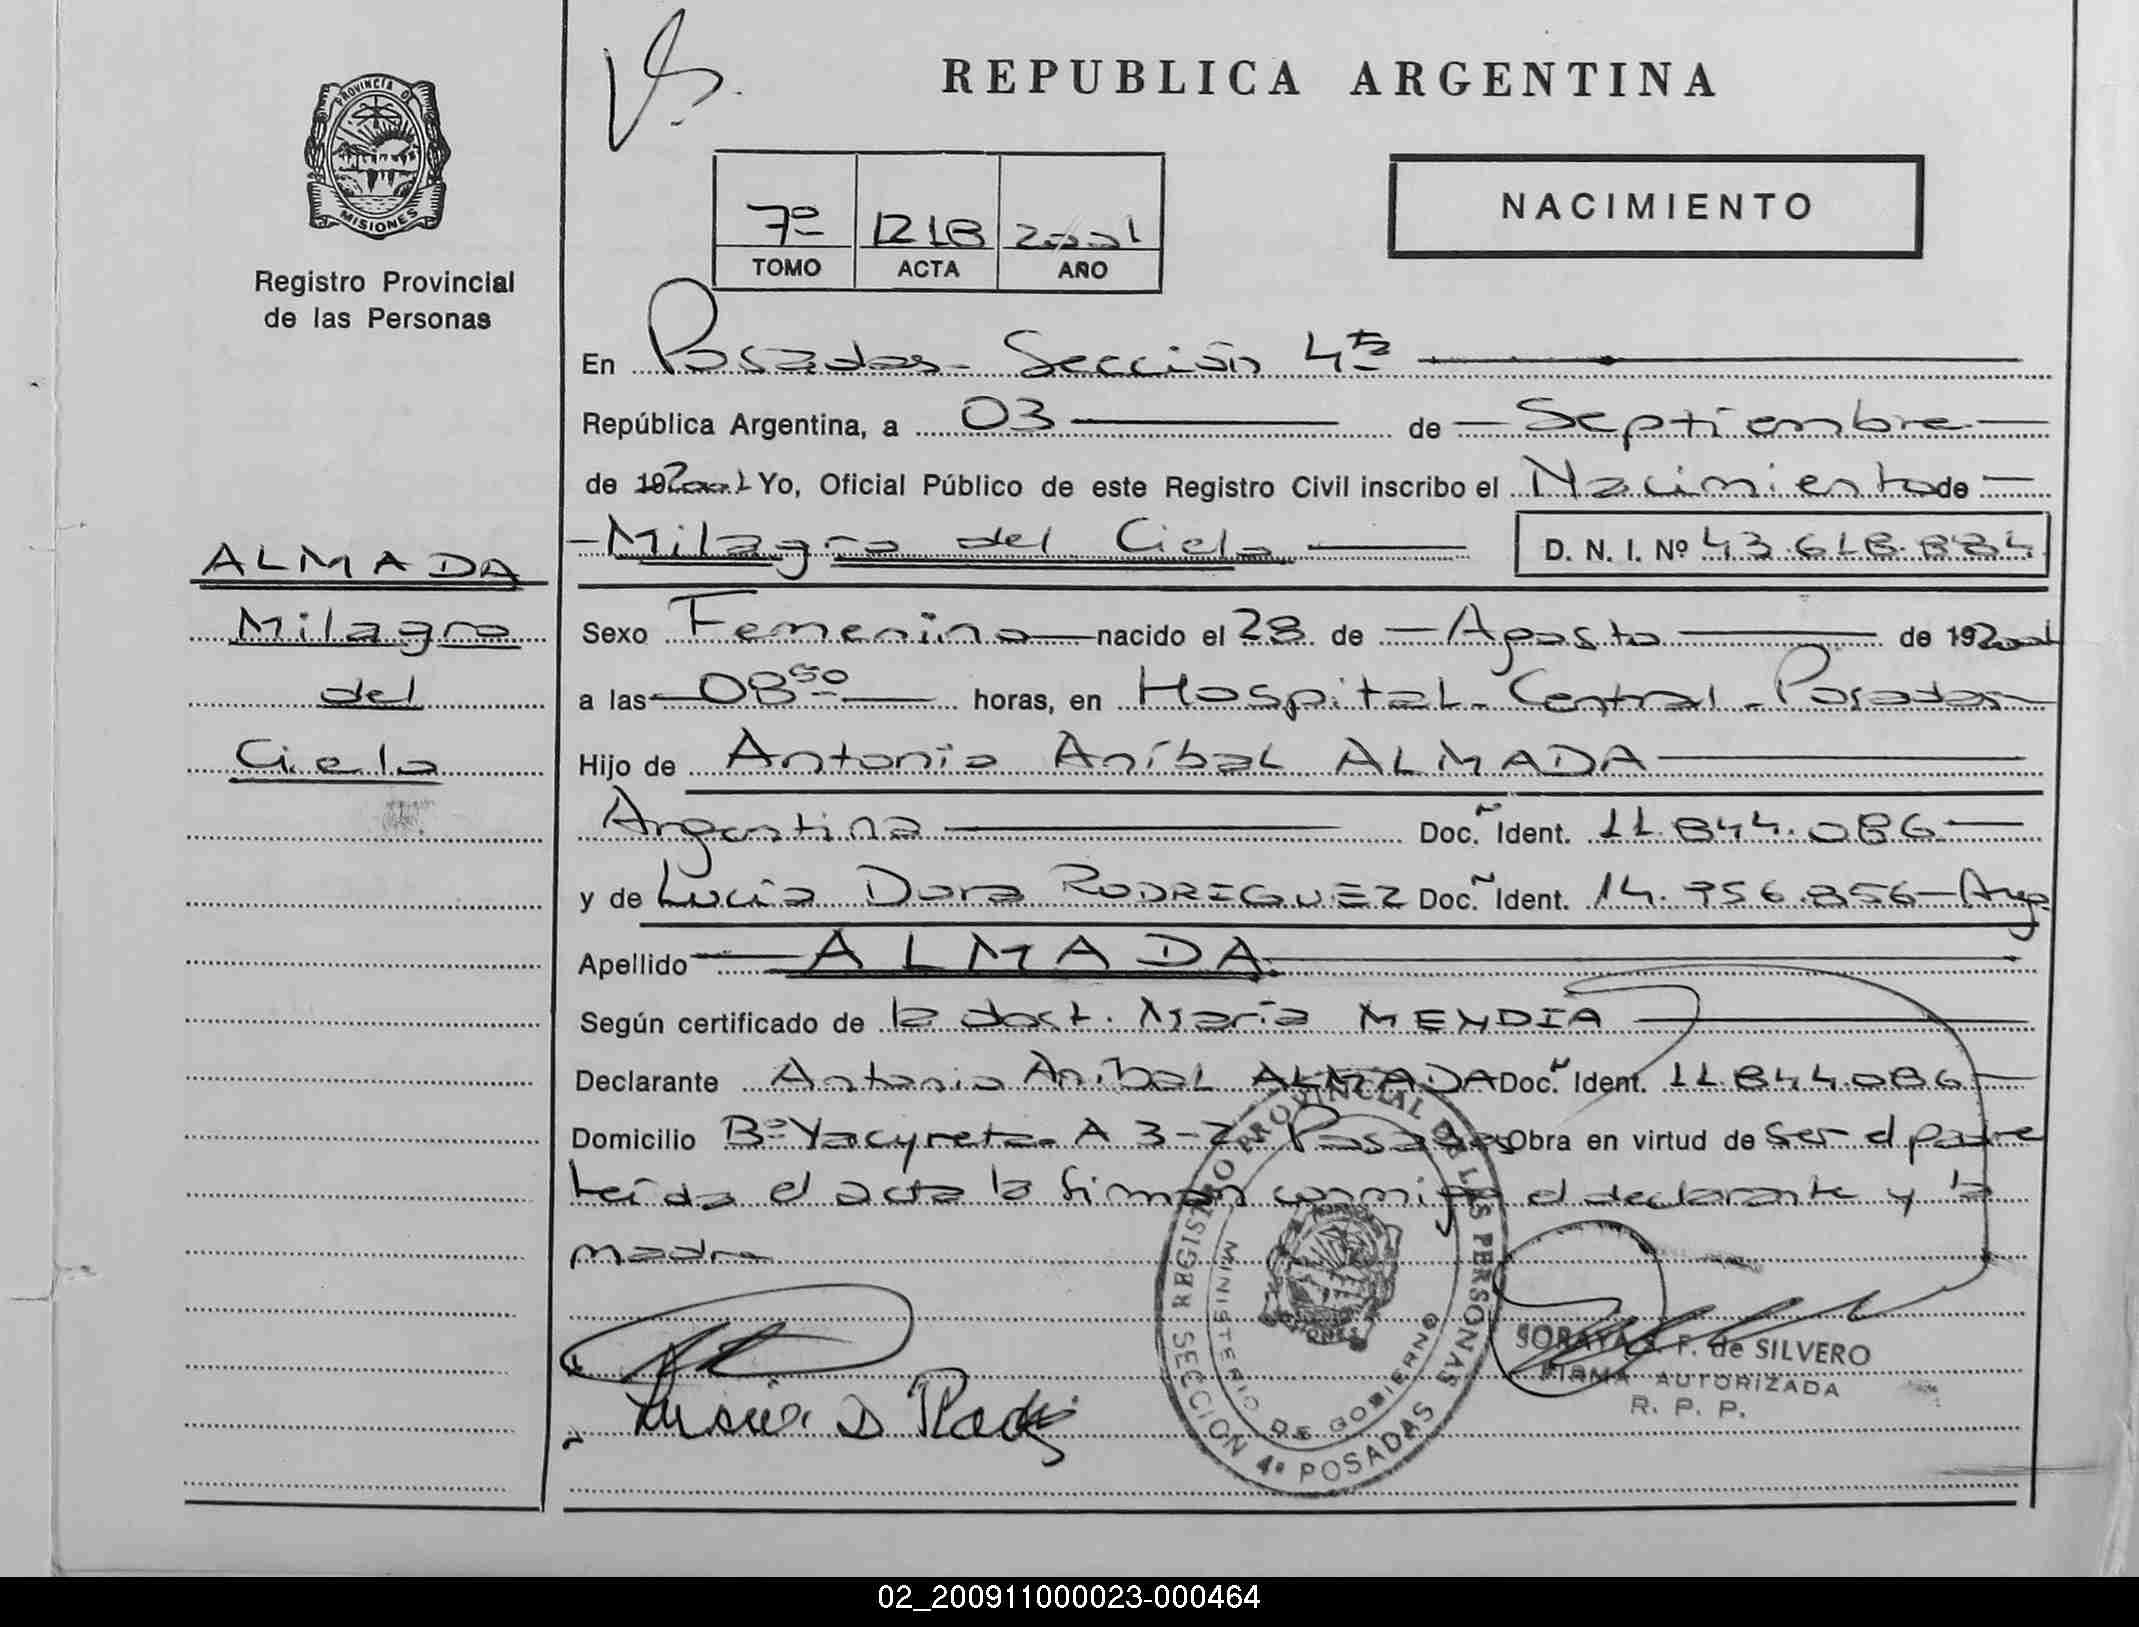 REPUBLICA ARGENTINA
PROVINCIA DE
MISIONES
Registro Provincial
de las Personas
7º 1218 2001
TOMO ACTA AÑO
NACIMIENTO
En Posadas - Sección 4ta
República Argentina, a 03 de Septiembre
de 192001 Yo, Oficial Público de este Registro Civil inscribo el Nacimiento de
Milagro del Cielo D. N. I. Nº 43.618.884
ALMADA
Milagro
del
Cielo
Sexo Femenino nacido el 28 de Agosto de 192001
a las 08 50 horas, en Hospital Central - Posadas
Hijo de Antonio Aníbal ALMADA
Argentina Doc. Ident. 11.844.086
y de Lucia Dora RODRIGUEZ Doc. Ident. 14.956.856 - Arg.
Apellido ALMADA
Según certificado de la dost. María MENDIA
Declarante Antonio Aníbal ALMADA Doc. Ident. 11.844.086
Domicilio Bº Yacyreta A 3-2 Posadas Obra en virtud de ser el padre
leída el acta la firman conmigo el declarante y la
madre
REGISTRO PROVINCIAL DE LAS PERSONAS
MINISTERIO DE GOBIERNO
SECCION 4ª POSADAS
SORAYA S. F. de SILVERO
FIRMA AUTORIZADA
R. P. P.
02_200911000023-000464